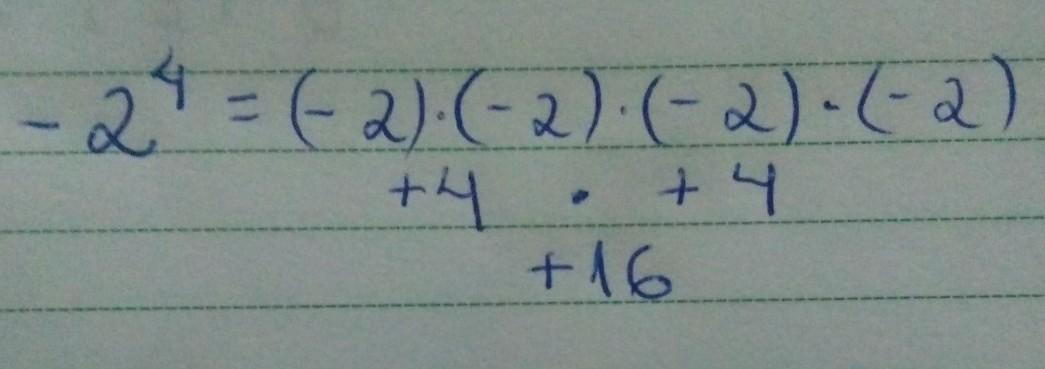 -2⁴ = (-2)·(-2)·(-2)·(-2)
+4 · +4
+16